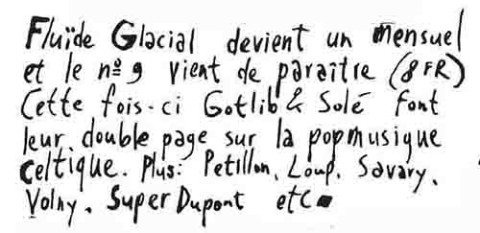 Fluïde Glacial devient un mensuel
et le nº 9 vient de paraître (8 FR)
Cette fois-ci Gotlib & Solé font
leur double page sur la popmusique
celtique. Plus: Petillon, Loup, Savary,
Volny, SuperDupont etc